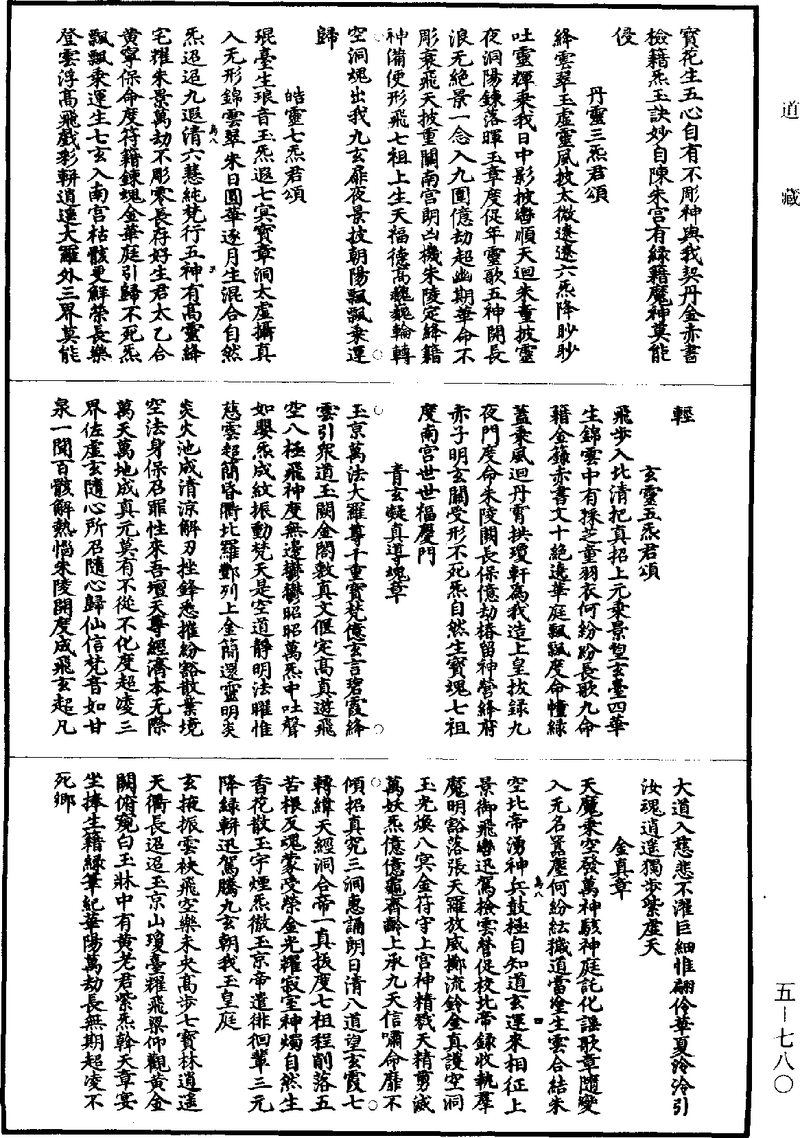 道藏
寶花生五心自有不彫神與我契丹金赤書
檢籍炁玉訣妙自陳朱宮有緑籍魔神莫能
侵
丹靈三炁君頌
絳雲翠玉虛靈風披太微遶遶六炁降眇眇
吐靈輝乗我日中影披轡順天迴朱童披靈
夜洞陽鍊落暉玉章度促年靈歌五神開長
浪无絶景一念入九圍億劫超幽期華命不
彫衰飛天披重關南宮朗凶機朱陵定絳籍
神備便形飛七祖上生天福德高巍巍輪轉
空洞魂出我九玄扉夜景披朝陽飄飄乗運
歸
皓靈七炁君頌
琨臺生琅音玉炁遐七㝠寶章洞太虛攝真
入无形錦雲翠朱日圓華逐月生混合自然
炁迢迢九遐清六慧純梵行五神有高靈絳
宅耀朱景萬劫不彫零長存好生君太乙合
黄寧保命度符籍鍊魂金華庭引歸不死炁
飄飄乗運生七玄入南宮枯骸更鮮榮長樂
登雲浮高飛戲彩軿逍遥大羅外三界莫能
輕
玄靈五炁君頌
飛步入北清把真招上元乗景望玄臺四華
生錦雲中有採芝童羽衣何紛紛長歌九命
籍金籙赤書文十絶遶華庭飄飄度命幢緑
蓋乗風迴丹霄拱瓊軒為我造上皇拔録九
夜門度命朱陵闕長保億劫椿留神營絳府
赤子明玄關受形不死炁自然生寶魂七祖
度南宮世世福慶門
青玄凝真導魂章
玉京萬法大羅尊千重寶梵億玄言碧霞絳
雲引眾道玉闕金閣敷真文偃定高真遊飛
空八極飛神度無邊鬱鬱昭昭萬炁中吐聲
如嬰炁成紋振動梵天是空道靜明法曜惟
慈雲超簡昏衢比羅酆列上金簡還靈明炎
炎火池成清涼解刃挫鋒悉摧紛豁散葉境
空法身保召罪性來吾壇天尊經濟本无際
萬天萬地成真元莫有不從不化度超凌三
界佐虛玄隨心所召隨心歸仙信梵音如甘
泉一聞百骸解熱惱朱陵開度成飛玄超凡
大道入慈悲不濯巨細惟翩伶華夏泠泠引
汝魂逍遥獨步紫虛天
金真章
天魔乗空發萬神駭神庭託化謡歌章隨變
入无名罵塵何紛紜攕道當塗生雲合結朱
空比帝湧神兵鼓極自知道玄運來相征上
景御飛轡迅駕檢雲營促校北帝録收執羣
魔明豁落張天羅放威擲流鈴金真護空洞
玉光煥八㝠金符守上宮神精戮天精剪滅
萬妖炁億億龜齊齡上承九天信嘯命靡不
傾招真究三洞惠誦朗日清八道望玄霞七
轉緯天經洞合帝一真拔度七祖程削落五
苦根反魂蒙受榮金光耀寂室神燭自然生
香花散玉宇煙炁徹玉京帝遣徘徊輦三元
降緑軿迅駕騰九玄朝我玉皇庭
玄掖振雲袂飛空樂未央高步七寶林逍遥
天衢長迢迢玉京山瓊臺耀飛梁仰觀黄金
闕俯窺白玉牀中有黄老君紫炁斡天章宴
坐捧生籍緑筆紀華陽萬劫長無期超凌不
死鄉
五－七八〇